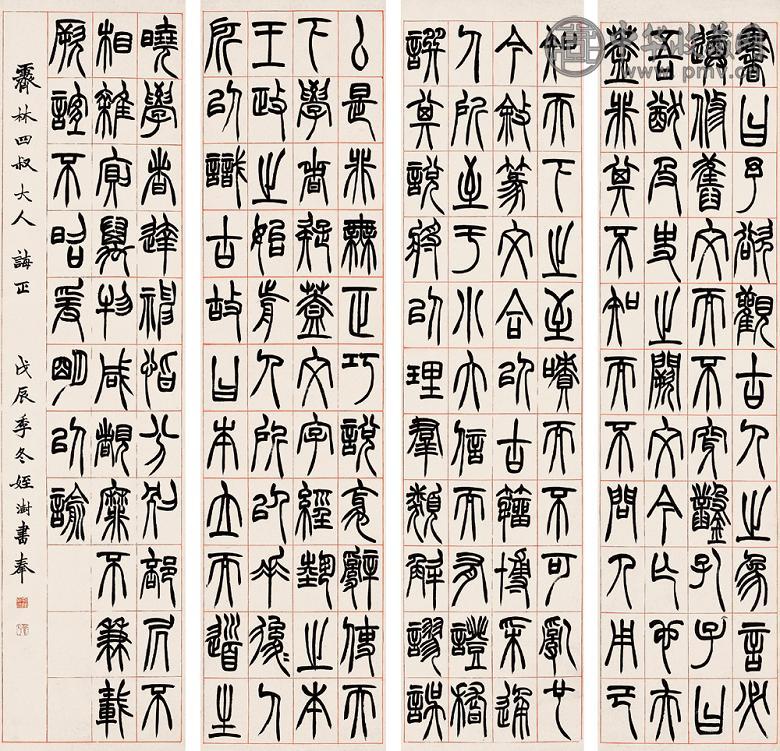 書曰予欲觀古人之象言必
遵修舊文而不穿鑿孔子曰
吾猶及史之闕文今亡也夫
蓋非其不知而不問人用己
厶是非無正巧說衺辭使天
下學者疑蓋文字經藝之本
王政之始前人所以垂後〻人
所以識古故曰本立而道生
知天下之至嘖而不可亂也
今敘篆文合以古籀博采通
人所至于小大信而有證稽
譔其說將以理羣類解謬誤
曉學者達神恉分別部居不
相雜廁萬物咸覩靡不兼載
厥誼不昭爰明以諭
林四叔大人 誨正 戊辰季冬姪澍書奉
中华收藏网
www.pmv.cn